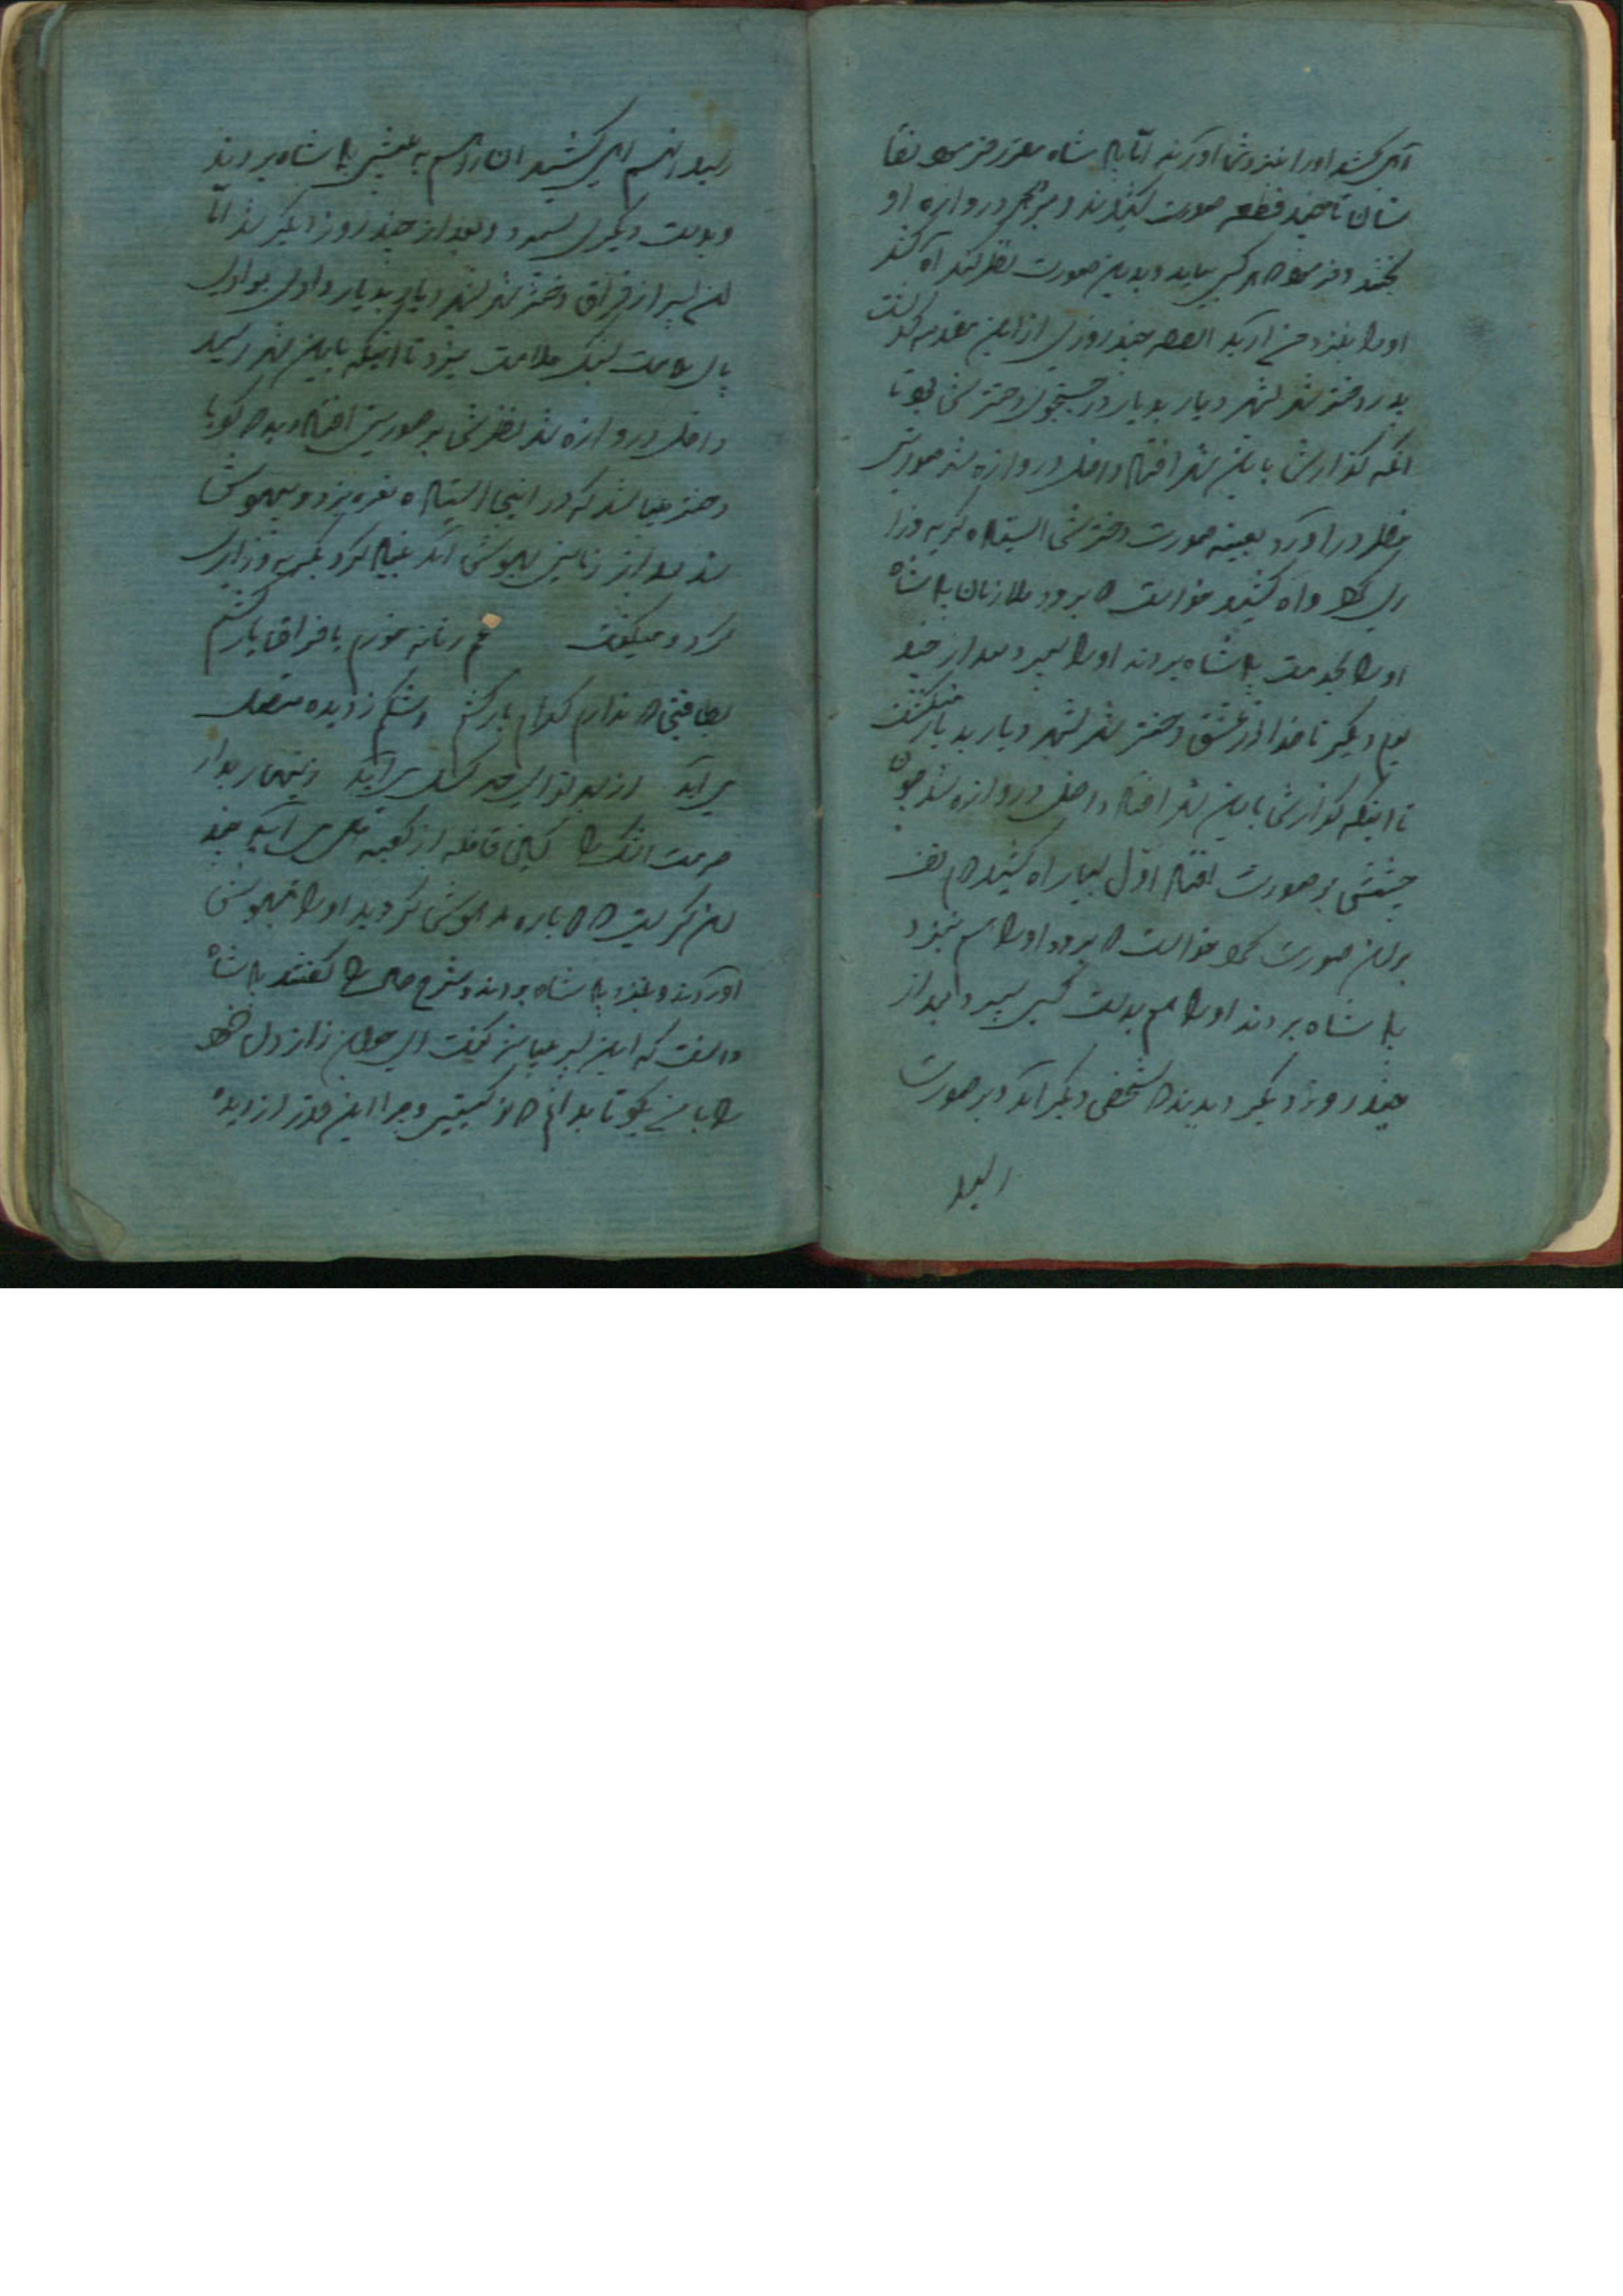 آهی کشید او را بنزدش آوردند اما پادشاه مقرر فرمود نقا
شان تا چند قطعه صورت کشیدند و بر دروازه او
یختند و فرمود هر کسی بیاید و بدین صورت نظر کند آه کشد
او را بنزد من آرید القصه چند روزی از این مقدمه گذشت
پدر دختر شهر بشهر دیار بدیار در جستجوی دخترش بود تا
آنکه گذارش باین شهر افتاد داخل دروازه شد صورتی
بنظر درآورد بعینه صورت دخترش ایستاده گریه و زا
ری کرد و آه کشید خواست که برود ملازمان پادشاه
او را بخدمت پادشاه بردند او را سپرد و بعد از چند
یوم دیگر ناخدا از عشق دختر شهر بشهر دیار بدیار میگشت
تا اینکه گذارش باین شهر افتاد داخل دروازه شد چون
چشمش بر صورت افتاد اول بسیار آه کشید هم تف
بر آن صورت کرد خواست که برود او را هم بنزد
پادشاه بردند او را هم بدست کسی سپرد و بعد از
چند روز دیگر دیدند که شخصی دیگر آمد و بر صورت
رسید
رسید آنهم آهی کشید آن را هم به پیش پادشاه بردند
و بدست دیگری سپرد و بعد از چند روز دیگر شد اما
آن پسر از فراق دختر شهر بشهر دیار بدیار وادی بوادی
پای سلامت بسنگ ملامت میزد تا اینکه باین شهر رسید
داخل دروازه شد نظرش بر صورتی افتاد دید که گویا
دختر میباشد که در اینجا ایستاده نعره بزد و بیهوش
شد بعد از زمانی بهوش آمد بنیاد کرد بگریه و زاری
کرد و میگفت غم زمانه خورم یا فراق یار کشم
بطاقتی که ندارم کدام بار کشم اشکم ز دیده متصل
می آید از بهر تو ای مه گسل می آید زنهار بدار
حرمت اشک مرا کاین قافله از کعبه دل می آید چند
آن گریست که دوباره مدهوش گردید او را بهوش
آوردند و بنزد پادشاه بردند و شرح حال را گفتند پادشاه
دانست که این پسر میباشد گفت ای جوان راز دل خود
را با من بگو تا بدانم که تو کیستی و چرا این قدر از دیده